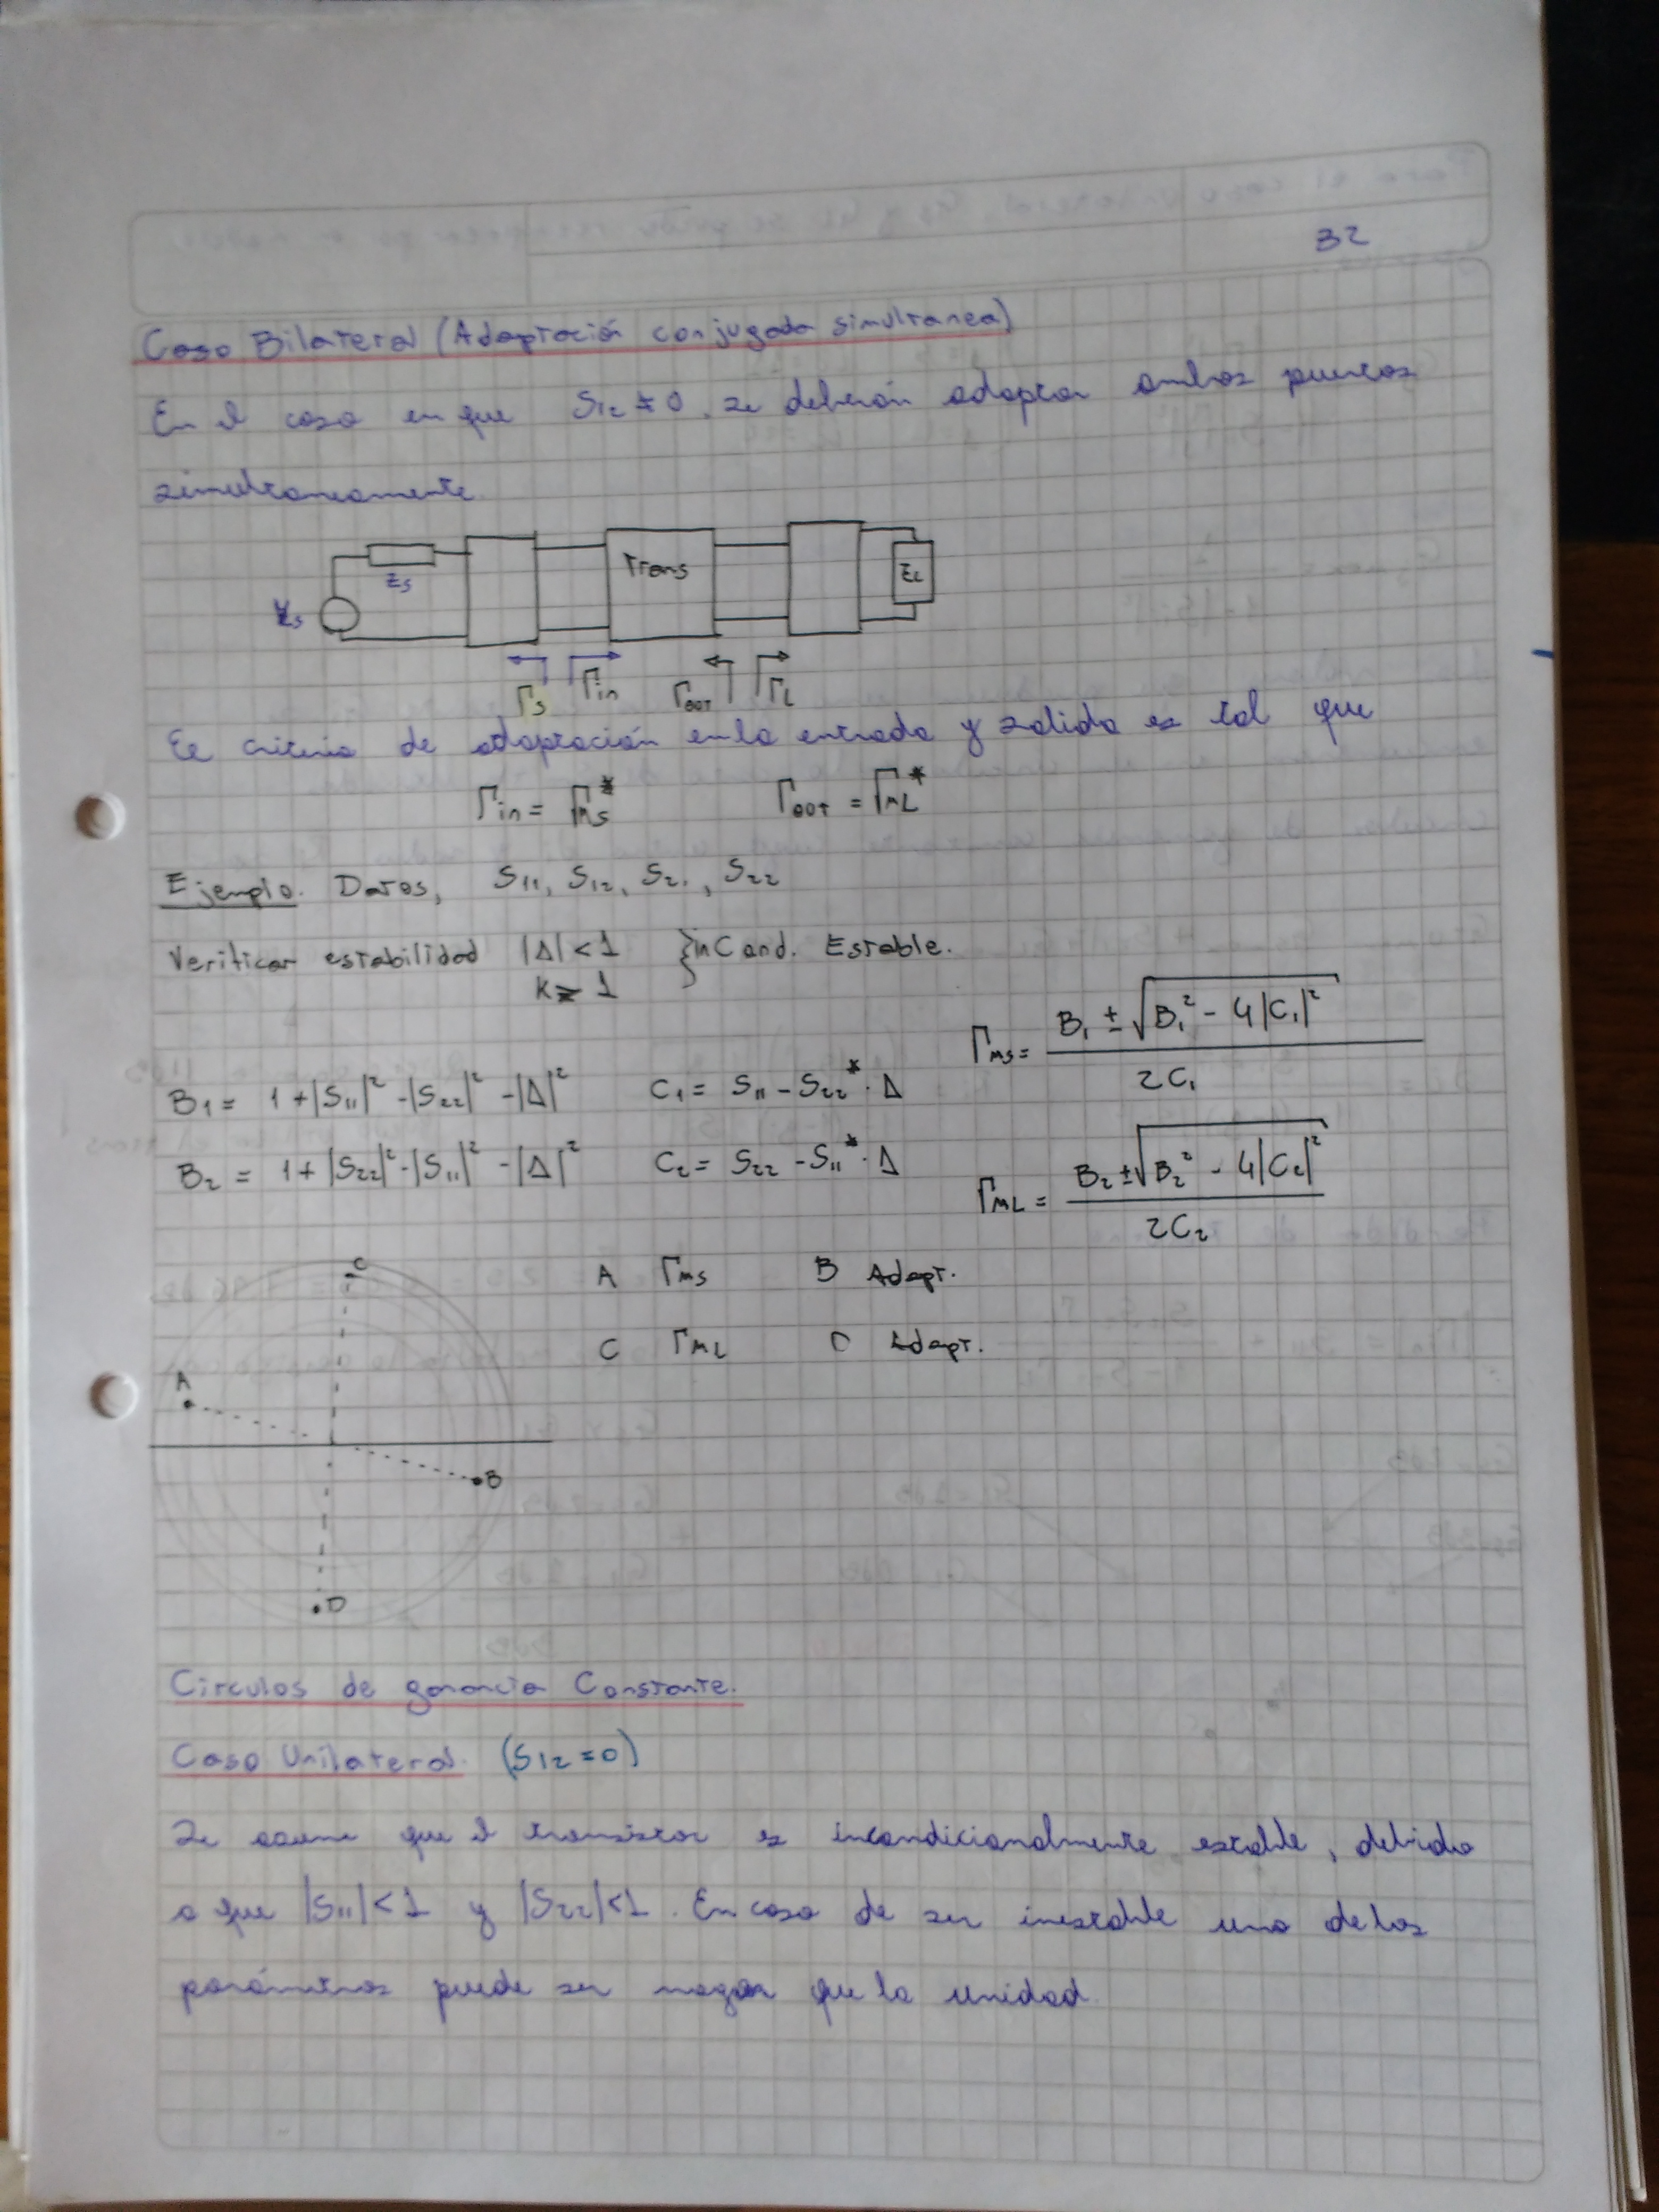 32
Caso Bilateral (Adaptación conjugada simultanea)
En el caso en que S12 ≠ 0, se deberán adaptar ambos puertos
simultaneamente.
Zs
Trans
ZL
Vs
Γs Γin Γout ΓL
El criterio de adaptación en la entrada y salida es tal que
Γin = Γms* Γout = ΓmL*
Ejemplo. Datos, S11, S12, S21, S22
Verificar estabilidad |Δ| < 1 } inCond. Estable.
K > 1
Γms = (B1 ± √(B1² - 4|C1|²)) / 2C1
B1 = 1 + |S11|² - |S22|² - |Δ|² C1 = S11 - S22* · Δ
B2 = 1 + |S22|² - |S11|² - |Δ|² C2 = S22 - S11* · Δ
ΓmL = (B2 ± √(B2² - 4|C2|²)) / 2C2
C
A Γms B Adapt.
C ΓmL D Adapt.
A
B
D
Circulos de ganancia Constante.
Caso Unilateral. (S12 = 0)
Se asume que el transistor es incondicionalmente estable, debido
a que |S11| < 1 y |S22| < 1. En caso de ser inestable uno de los
parámetros puede ser mayor que la unidad.